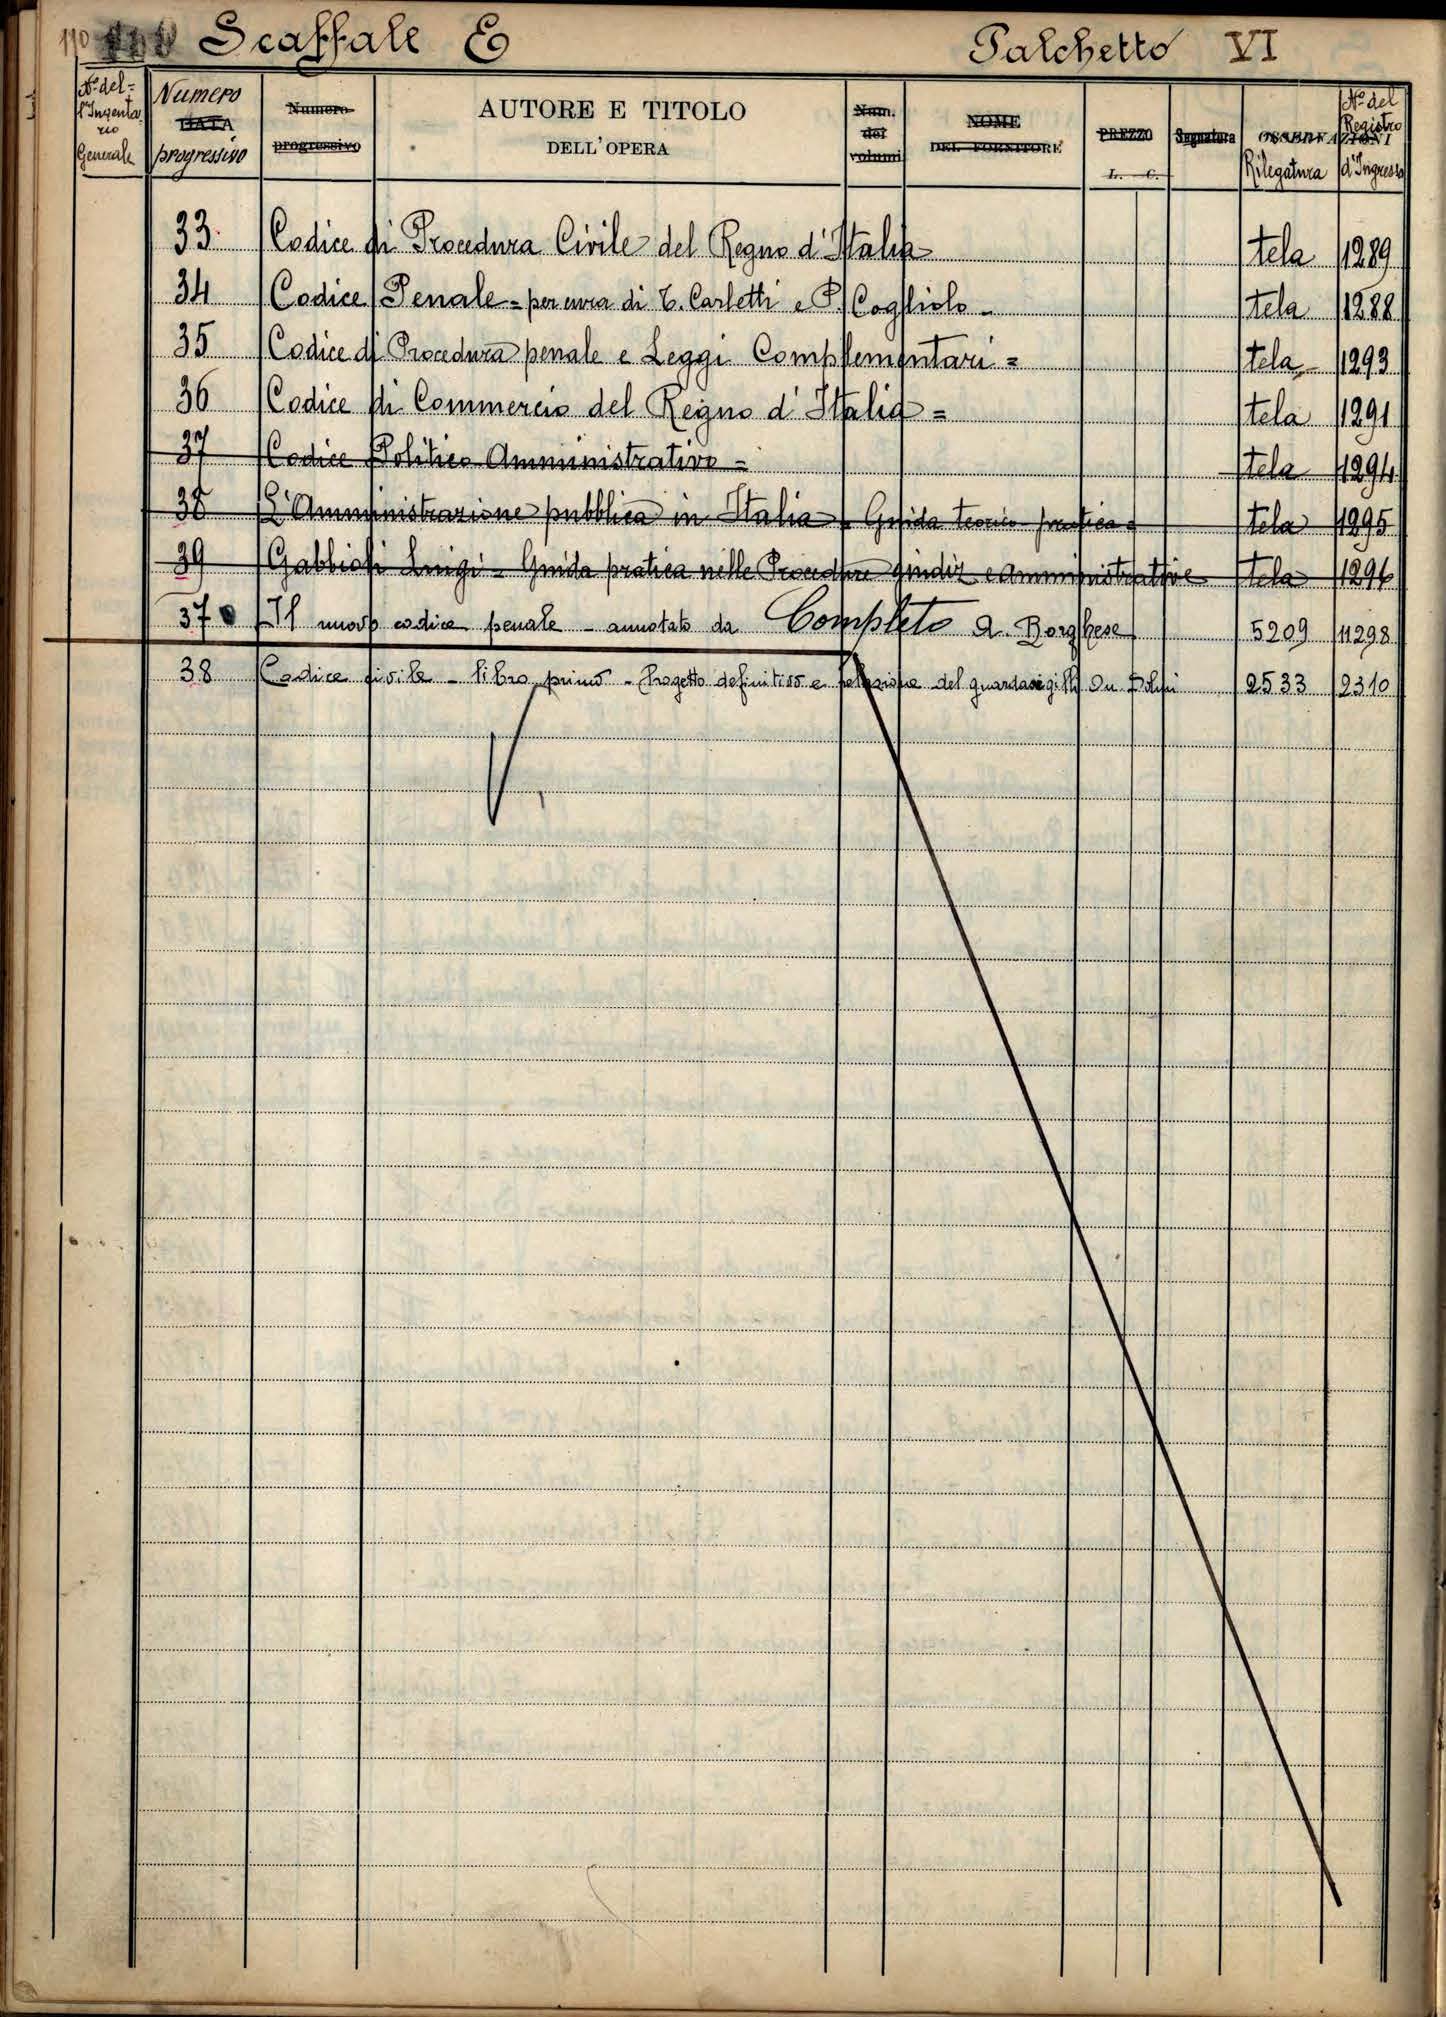 110 Scaffale E Palchetto VI
N.° del-l'Inventario Generale
Numero DATA progressivo
Numero progressivo
AUTORE E TITOLO
DELL'OPERA
Num. dei volumi
NOME
DEL FORNITORE
PREZZO
L. C.
Segnatura
OSSERVAZIONI
Rilegatura
N.° del Registro d'Ingresso
33 Codice di Procedura Civile del Regno d'Italia tela 1289
34 Codice Penale = per cura di T. Carletti e P. Cogliolo - tela 1288
35 Codice di Procedura penale e Leggi Complementari = tela 1293
36 Codice di Commercio del Regno d'Italia = tela 1291
37 Codice Politico Amministrativo = tela 1294
38 L'Amministrazione pubblica in Italia = Guida teorico-pratica = tela 1295
39 Gabbioli Luigi = Guida pratica nelle Procedure giudiz e amministrative tela 1296
37 Il nuovo codice penale - annotato da Completo A. Borghese 5209 11298
38 Codice civile - libro primo - Progetto definitivo e relazione del guardasigilli On Solmi 2533 2310